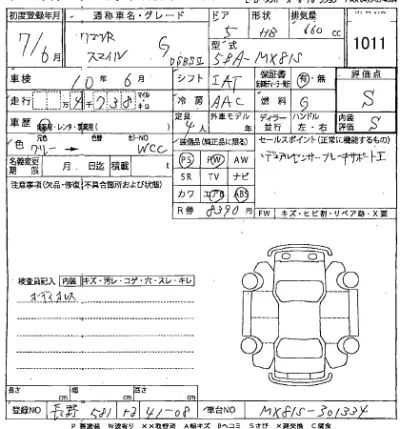 初度登録年月 通称車名・グレード ドア 形状 排気量
7/6月 G 5 HB 660 cc
型式
DSBSII 5BA-MX81S
1011
車検 10年6月 シフト IAT 保証書 有・無 評価点
走行 4千738 冷房 AAC 燃料 G S
車歴 自家用・レンタ・ 定員 4人 外車モデル ディーラー 並行 ハンドル 左・右 内装評価 S
色 元色 色替 カラーNO
グリー → WCC
装備品(純正品に限る) セールスポイント(正常に機能するもの)
名義変更期限 月 日迄 積載 t
PS PW AW
デュアルセンサーブレーキサポートII
注意事項(欠品・修復)不具合箇所および状態)
SR TV ナビ
カワ エアB ABS
R券 8390円
FW キズ・ヒビ割・リペア跡・X要
検査員記入 内装 キズ・汚レ・コゲ・穴・スレ・キレ
オーディオレス
長さ cm 幅 cm 高さ cm
登録NO 長野 581 41-08 車台NO MX81S-301334
P 要塗装 W波有り XX取替済 A線キズ Bヘコミ Sさび X要交換 C腐食